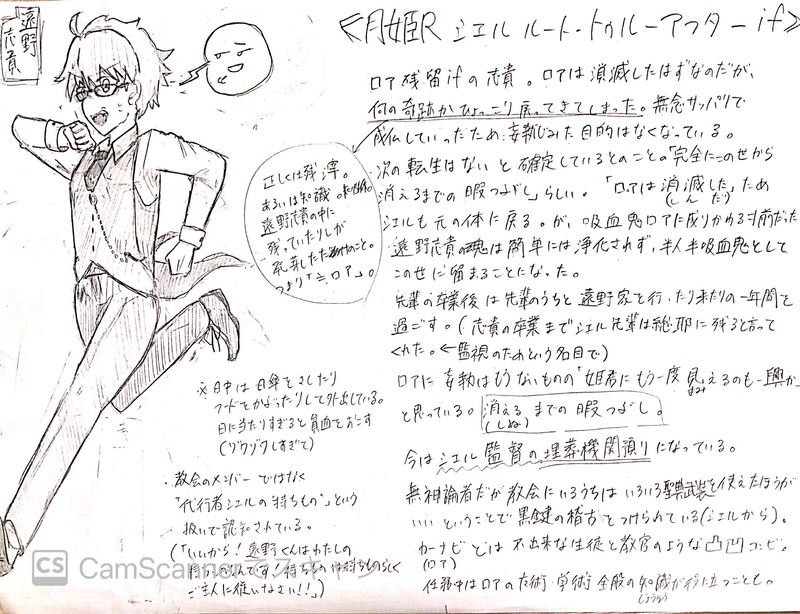 遠野
志貴
≪月姫R シエルルート・トゥルーアフター if≫
ロア残留ifの志貴。ロアは消滅したはずなのだが、
何の奇跡かひょっこり戻ってきてしまった。無念サッパリで
成仏していったため、妄執じみた目的はなくなっている。
次の転生はないと確定しているとのことの「完全にこの世から
消えるまでの暇つぶし」らしい。「ロアは消滅した」ため
(しんだ)
シエルも元の体に戻る。が、吸血鬼ロアに成りかける寸前だった
遠野志貴の魂は簡単には浄化されず、半人半吸血鬼として
この世に留まることになった。
先輩の卒業後は先輩のうちと遠野家を行ったり来たりの一年間を
過ごす。(志貴の卒業までシエル先輩は総耶に残ると言って
くれた。←監視のためという名目で)
ロアに妄執はもうないものの「姫君にもう一度見えるのも一興か」
まみ
と思っている。消えるまでの暇つぶし。
(しぬ)
今はシエル監督の埋葬機関預りになっている。
無神論者だが教会にいるうちはいろいろ聖典武装を使えたほうが
いいということで黒鍵の稽古をつけられている(シエルから)。
カーナビとは不出来な生徒と教官のような凸凹コンビ。
(ロア)
任務中はロアの魔術・学術全般の知識が役に立つことも。
正しくは残滓。
あるいは知識
遠野志貴の中に
残っていたりしが
つまり「≒ロア」。
※日中は日傘をさしたり
フードをかぶったりして外出している。
日に当たりすぎると貧血をおこす
(ゾクゾクしすぎて)
・教会のメンバーではなく
「代行者シエルの持ちもの」という
扱いで認知されている。
(「いいから!遠野くんはわたしの
持ちものなんです!持ちものは持ちものらしく
ご主人に従いなさい!!」)
CS CamScanner